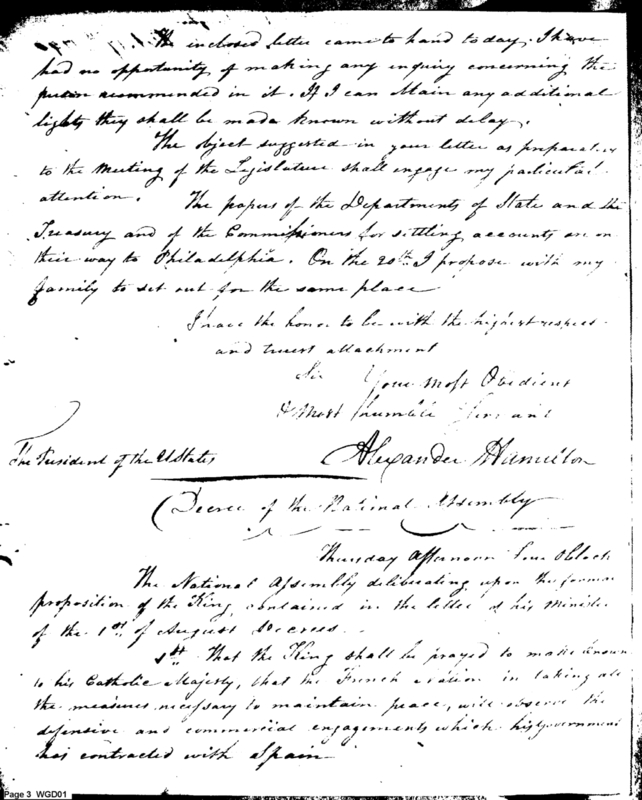 The inclosed letter came to hand today. I have
had no opportunity of making any enquiry concerning the
person recommended in it. If I can obtain any additional
lights they shall be made known without delay.
The object suggested in your letter as preparatory
to the meeting of the Legislature shall engage my particular
attention. The papers of the Departments of State and the
Treasury and of the Commissioners for settling accounts are on
their way to Philadelphia. On the 20th I propose with my
family to set out for the same place
I have the honor to be with the highest respect
and truest attachment
Sir Your Most Obedient
& Most humble Servant
The President of the U States Alexander Hamilton
Decree of the National Assembly
Thursday Afternoon four OClock
The National Assembly deliberating upon the formal
proposition of the King, contained in the letter of his Minister
of the 1st of August Decrees.
1st. That the King shall be prayed to make known
to his Catholic Majesty, that the French Nation in taking all
the measures necessary to maintain peace, will observe the
defensive and commercial engagements which his Government
has contracted with Spain
Page 3 WGD01